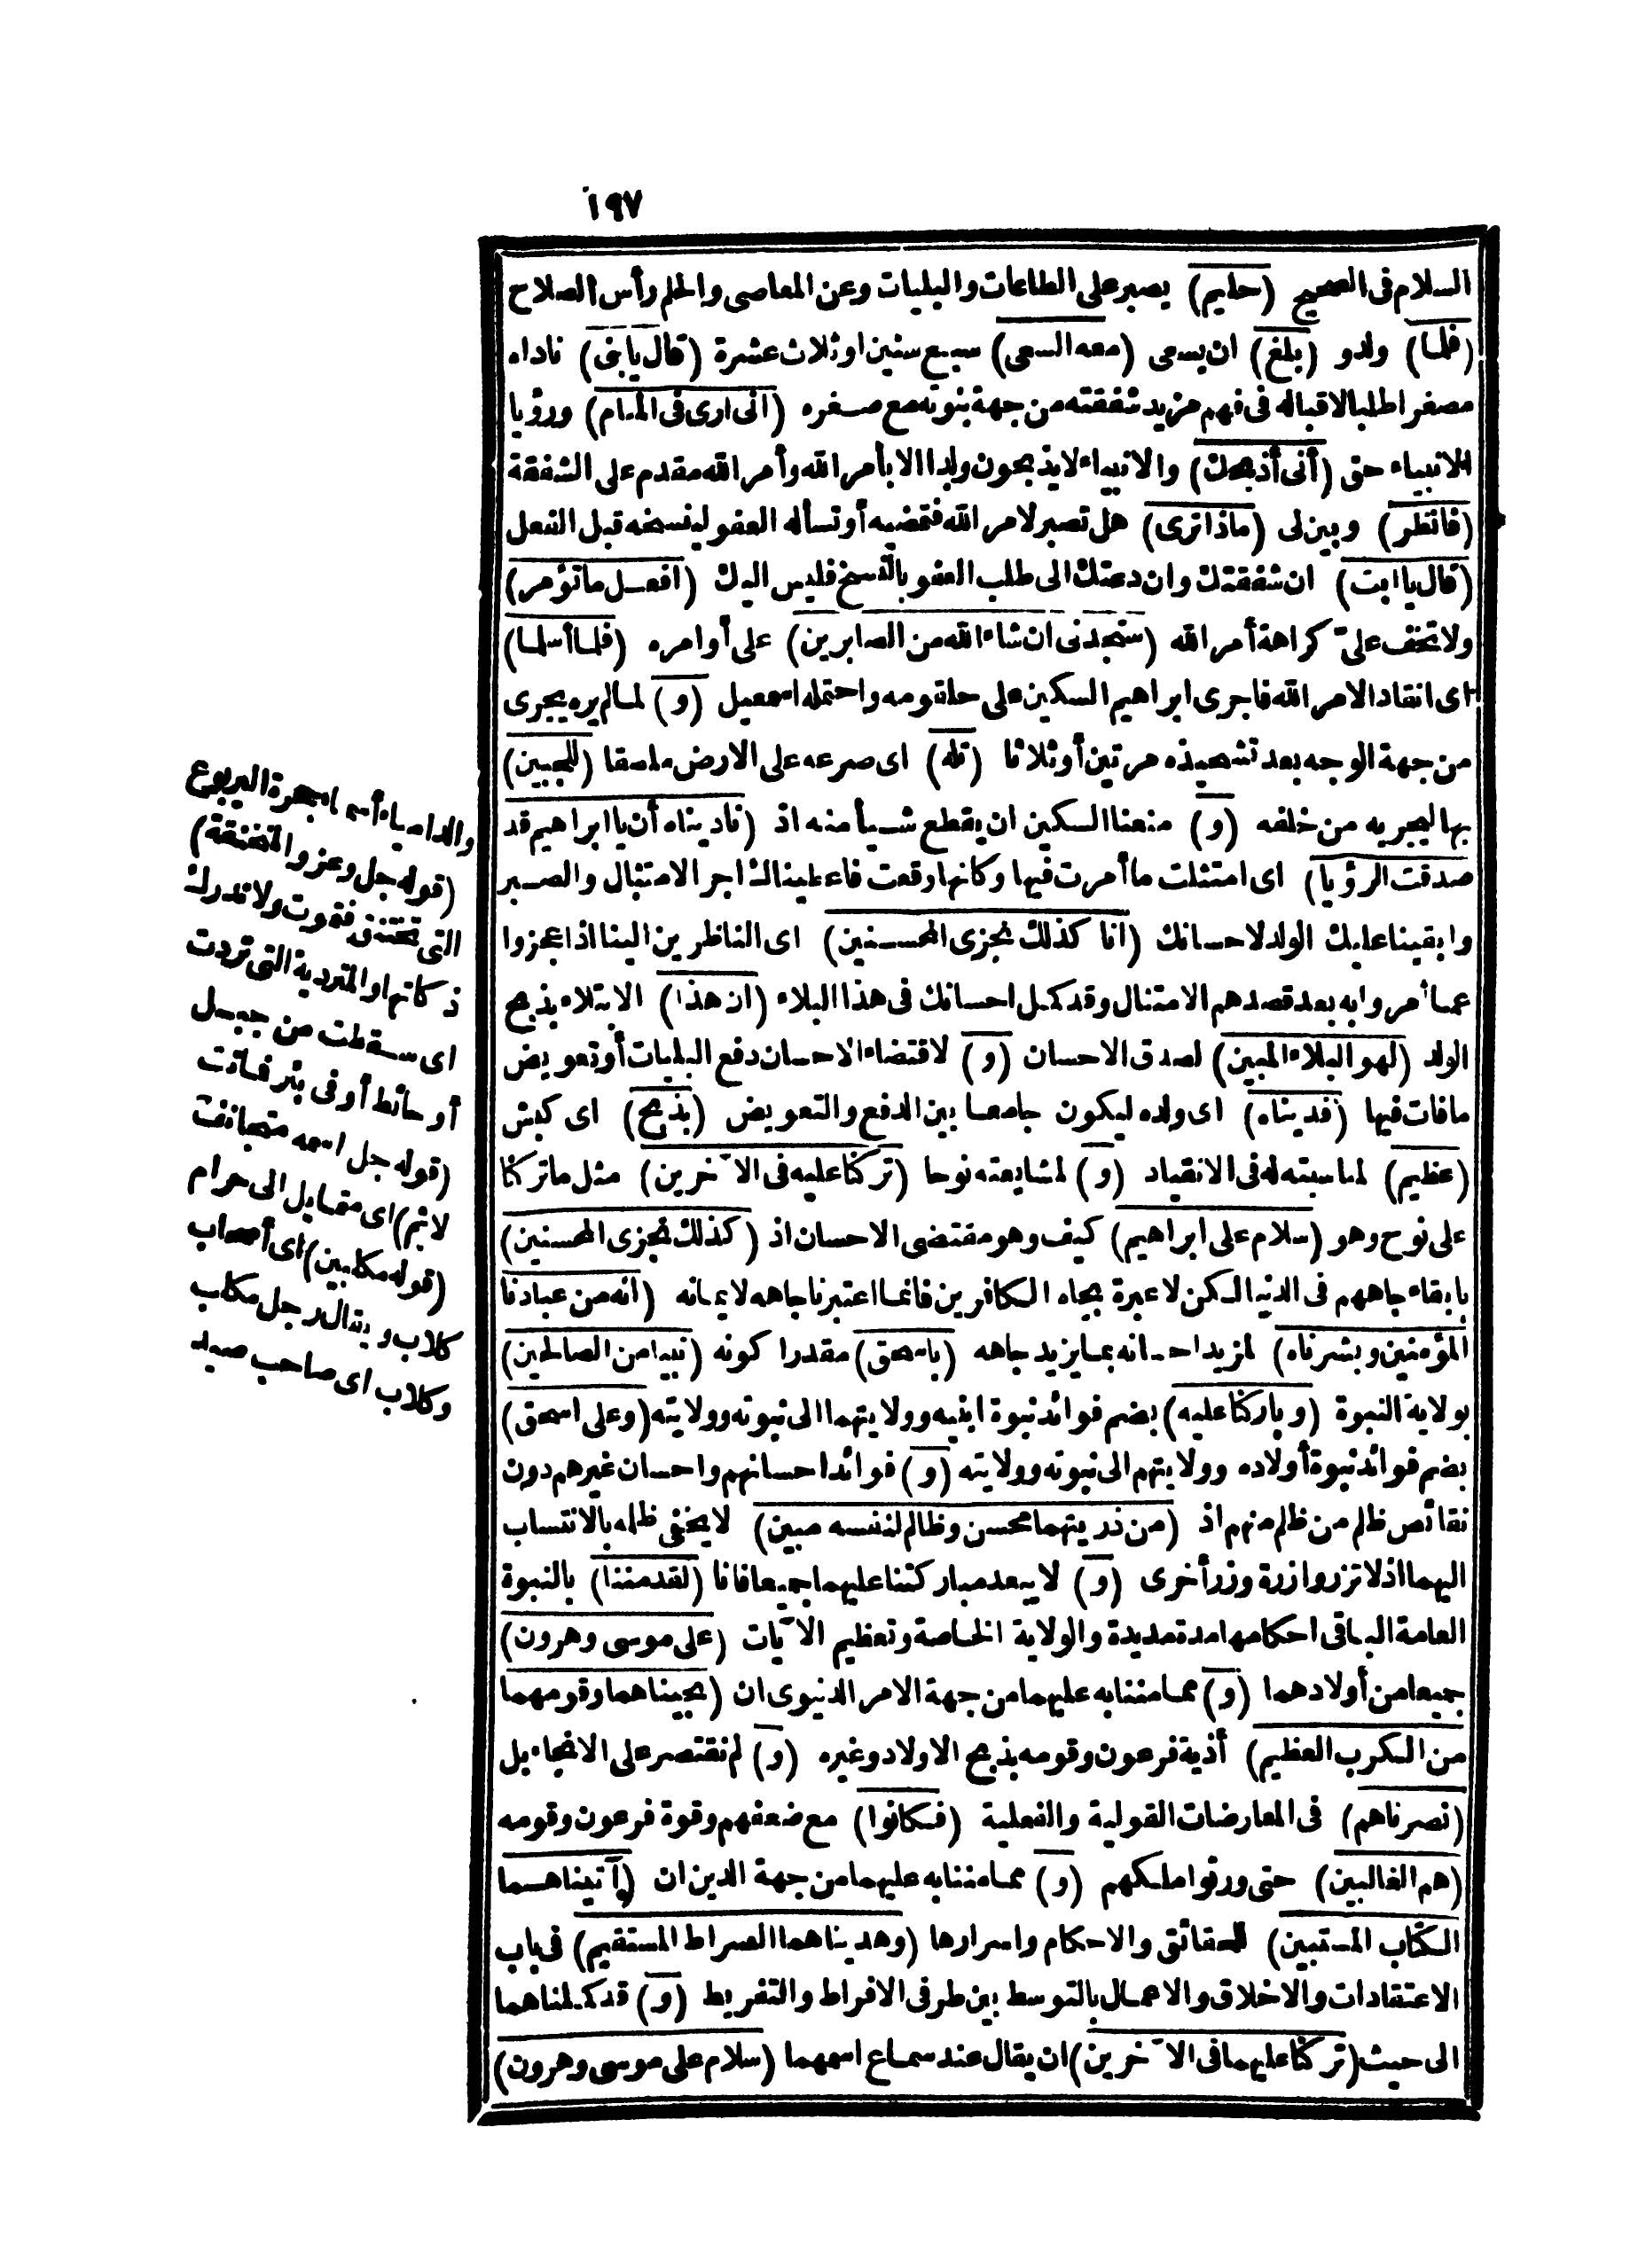 ١٩٧
السلام فى الصحيح (حليم) يصبر على الطاعات والبليات وعن المعاصى والحلم رأس الصلاح
(فلما) ولد و (بلغ) ان يسعى (معه السعى) سبع سنين او ثلاث عشرة (قال يا بنى) ناداه
مصغرا طلبا لاقباله فى فهم مزيد شفقته من جهة بنوته مع صغره (انى ارى فى المنام) ورؤيا
الانبياء حق (أنى أذبحك) والانبياء لا يذبحون ولدا الا بأمر الله وأمر الله مقدم على الشفقة
(فانظر) وبين لى (ماذا ترى) هل تصبر لامر الله فقضيه أو تسأله العفو لينسخه قبل الفعل
(قال يا ابت) ان شفقتك وان دعتك الى طلب العفو بالنسخ فليس اليك (افعل ما تؤمر)
ولا تخف علىّ كراهة أمر الله (ستجدنى ان شاء الله من الصابرين) على أوامره (فلما أسلما)
اى انقادا لامر الله فاجرى ابراهيم السكين على حلقومه واحتمله اسمعيل (و) لما لم يره يجرى
من جهة الوجه بعد تشحيذه مرتين أو ثلاثا (تله) اى صرعه على الارض ملصقا (للجبين)
بها ليجريه من خلفه (و) منعنا السكين ان يقطع شيأ منه اذ (ناديناه أن يا ابراهيم قد
صدقت الرؤيا) اى امتثلت ما أمرت فيها وكانها وقعت فاعطيناك اجر الامتثال والصبر
وابقينا عليك الولد لاحسانك (انا كذلك نجزى المحسنين) اى الناظرين الينا اذا عجزوا
عما أمروا به بعد قصدهم الامتثال وقد كمل احسانك فى هذا البلاء (ان هذا) الابتلاء بذبح
الولد (لهو البلاء المبين) لصدق الاحسان (و) لاقتضاء الاحسان دفع البليات أو تعويض
ما فات فيها (فديناه) اى ولده ليكون جامعا بين الدفع والتعويض (بذبح) اى كبش
(عظيم) لمناسبته له فى الانقياد (و) لمشابعته نوحا (تركنا عليه فى الآخرين) مثل ما تركنا
على نوح وهو (سلام على ابراهيم) كيف وهو مقتضى الاحسان اذ (كذلك نجزى المحسنين)
بابقاء جاههم فى الدنيا لكن لا عبرة بجاه الكافرين فانما اعتبرنا جاهه لايمانه (انه من عبادنا
المؤمنين وبشرناه) لمزيد احسانه بما يزيد جاهه (باسحق) مقدرا كونه (نبيا من الصالحين)
بولاية النبوة (وباركنا عليه) بضم فوائد نبوة ابنيه وولايتهما الى نبوته وولايته (وعلى اسحق)
بضم فوائد نبوة أولاده وولايتهم الى نبوته وولايته (و) فوائد احسانهم واحسان غيرهم دون
نقائص ظلم من ظلم منهم اذ (من ذريتهما محسن وظالم لنفسه مبين) لا يخفى ظلمه بالانتساب
اليهما اذ لا تزر وازرة وزر أخرى (و) لا يبعد مباركتنا عليهما جميعا فانا (لقد مننا) بالنبوة
العامة الباقى احكامها مدة مديدة والولاية الخاصة وتعظيم الآيات (على موسى وهرون)
جميعا من أولادهما (و) مما مننا به عليهما من جهة الامر الدنيوى ان (نجيناهما وقومهما
من الكرب العظيم) أذية فرعون وقومه بذبح الاولاد وغيره (و) لم نقتصر على الانجاء بل
(نصرناهم) فى المعارضات القولية والفعلية (فكانوا) مع ضعفهم وقوة فرعون وقومه
(هم الغالبين) حتى ورثوا ملكهم (و) مما مننا به عليهما من جهة الدين ان (آتيناهما
الكتاب المستبين) للحقائق والاحكام واسرارها (وهديناهما الصراط المستقيم) فى باب
الاعتقادات والاخلاق والاعمال بالتوسط بين طرفى الافراط والتفريط (و) قد كملناهما
الى حيث (تركنا عليهما فى الآخرين) ان يقال عند سماع اسمهما (سلام على موسى وهرون)
والداميا أسماء جحرة اليربوع
(قوله جل وعز والمنخنقة)
التى تختنق فتموت ولا تدرك
ذكاتها والمتردية التى تردت
اى سقطت من جبل
أو حائط أو فى بئر فماتت
(قوله جل اسمه متجانف
لاثم) اى مقابل الى حرام
(قوله مكلبين) اى أصحاب
كلاب ويقال رجل مكلب
وكلاب اى صاحب صيد